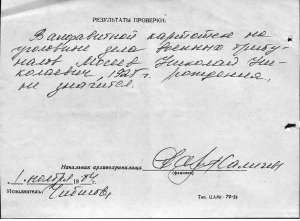 РЕЗУЛЬТАТЫ ПРОВЕРКИ:
В алфавитной картотеке на
уголовные дела военных трибу-
налов Мосеев Николай Ни-
колаевич, 1925 г. рождения,
не значится.
Начальник архивохранилища
Калегин
(фамилия)
1 ноября 19
Исполнитель Чибисова
Тип. ЦАМО